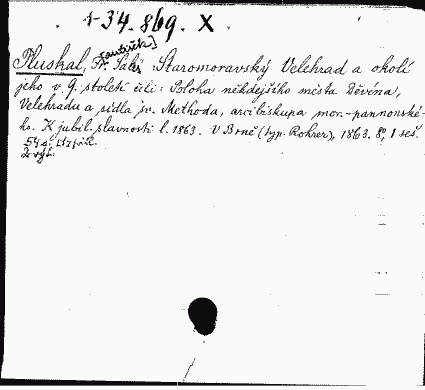 1-34.869. X
[antišek]
Pluskal, Fr. Sales Staromoravský Velehrad a okolí
jeho v 9. století čili: Poloha někdejšího města Děvína,
Velehradu a sídla sv. Methoda, arcibiskupa mor.-pannonské-
ho. K jubil. slavnosti l. 1863. V Brně (typ. Rohrer), 1863. 8°, 1 seš.
54 s.
2 výt.